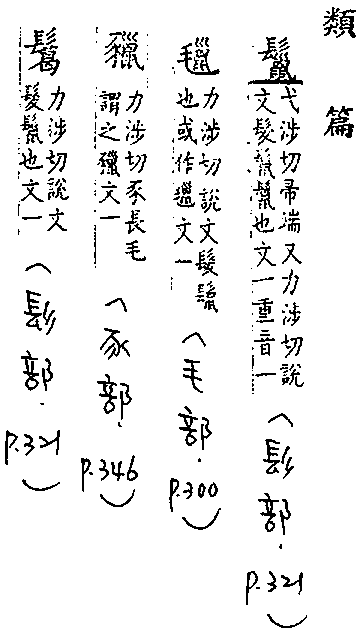 類篇
鬣
弋涉切帚端又力涉切說
文髮鬣鬣也文一重音一
(髟部.
P.321)
力涉切說文髮鬣
也或作㲱文一
(毛部.
P.300)
力涉切豕長毛
謂之獵文一
(豕部.
P.346)
力涉切說文
髮鬣也文一
(髟部.
P.321)